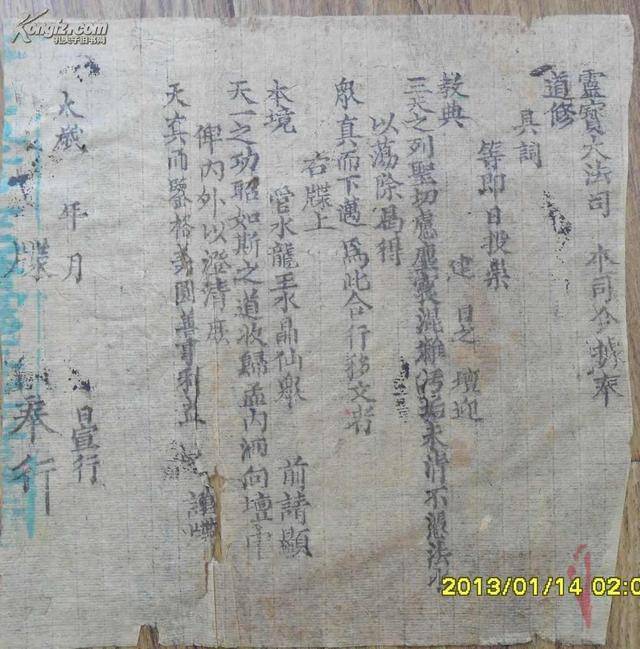 靈寶大法司 本司今據奉
道修
具詞
等即日投策
教典 建 日之壇迎
三天之列聖切慮塵囂混雜污垢未清不憑法水
以蕩除曷得
眾真而下邁為此合行移文者
右牒上
本境 管水龍王水晶仙眾 前請顯
天一之功昭如斯之道收歸盂內洒向壇中
俾內外以澄清庶
天真而鑒格善圓善果利益 謹牒
太歲 年 月 日宣行
牒 奉行
Kongfz.com
孔夫子旧书网
2013/01/14 02:0